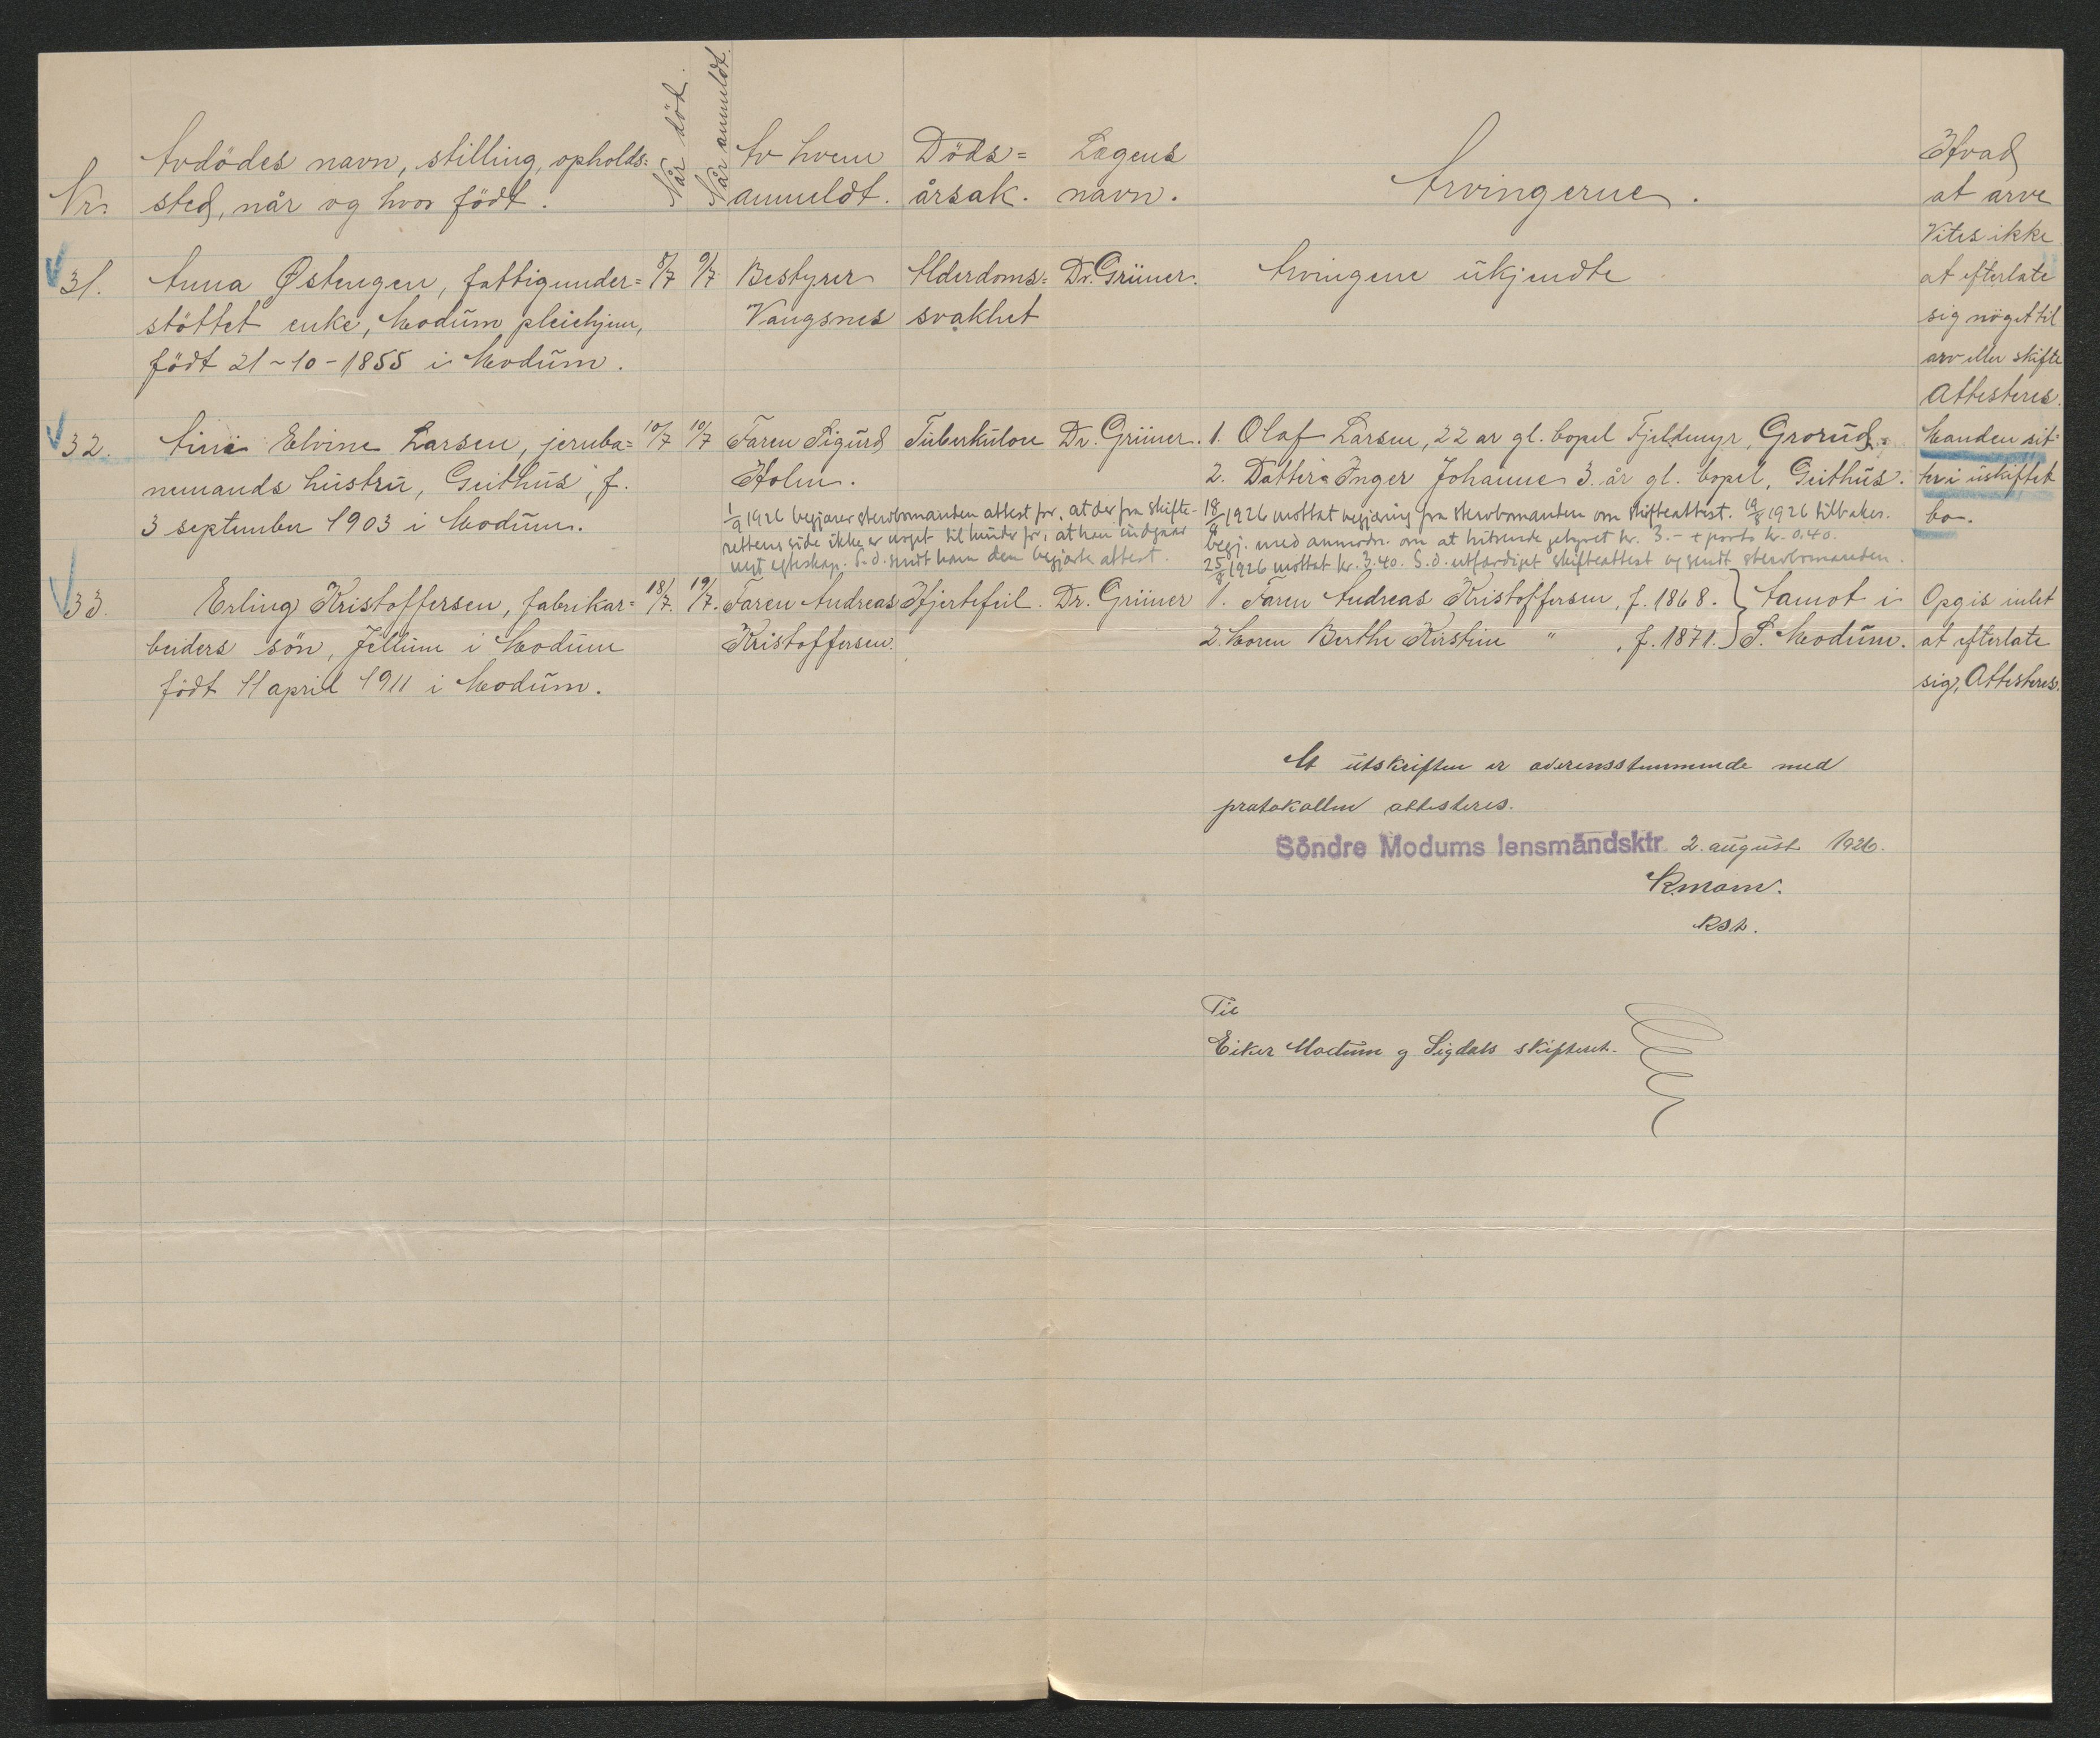 Nr.
Avdödes navn, stilling, opholds=
sted, når og hvor födt.
Når död.
Når anmeldt.
Av hvem
anmeldt.
Döds=
årsak.
Lægens
navn.
Arvingerne.
Hvad
at arve
31.
Anna Østengen, fattigunder=
stöttet enke, Modum pleiehjem,
födt 21-10-1855 i Modum.
8/7
9/7
Bestyrer
Vangsnes
Alderdoms=
svakhet
Dr. Grüner.
Arvingene ukjendte
Vites ikke
at efterlate
sig nöget til
arv eller skifte
Attesteres.
32.
Elvine Larsen, jernba=
nemands hustru, Geithus, f.
3 september 1903 i Modum.
10/7
10/7
Faren Sigurd
Holm.
Tuberkulose
Dr. Grüner.
1. Olaf Larsen, 22 ar gl. bopel Fjeldmyr, Grorud.
2. Datter Inger Johanne 3 år gl. bopel, Geithus.
Manden sit=
ter i uskiftet
bo.
1/9 1926 begjærer stervbomanden attest for, at der fra skifte-
rettens side ikke er noget til hinder for, at han indgaar
nyt egteskap. S.d. sendt ham den begjærte attest.
18/8 1926 mottat begjæring fra stervbomanden om skifteattest. 19/8 1926 tilbakes.
begj. med anmodn. om at hitsende gebyret kr. 3.- + porto kr. 0.40.
25/8 1926 mottat kr. 3.40. S.d. utfærdiget skifteattest og sendt stervbomanden.
33.
Erling Kristoffersen, fabrikar=
beiders sön, Jellum i Modum
födt 11 april 1911 i Modum.
18/7.
19/7.
Faren Andreas
Kristoffersen.
Hjertefeil.
Dr. Grüner
1. Faren Andreas Kristoffersen, f. 1868.
2. Moren Berthe Kirstine " , f. 1871.
Åamot i
S. Modum.
Opgis intet
at efterlate
sig, Attesteres.
At utskriften er overensstemmende med
protokollen attesteres.
Söndre Modums lensmandsktr. 2. august 1926.
Til
Eiker Modum og Sigdals skifteret.